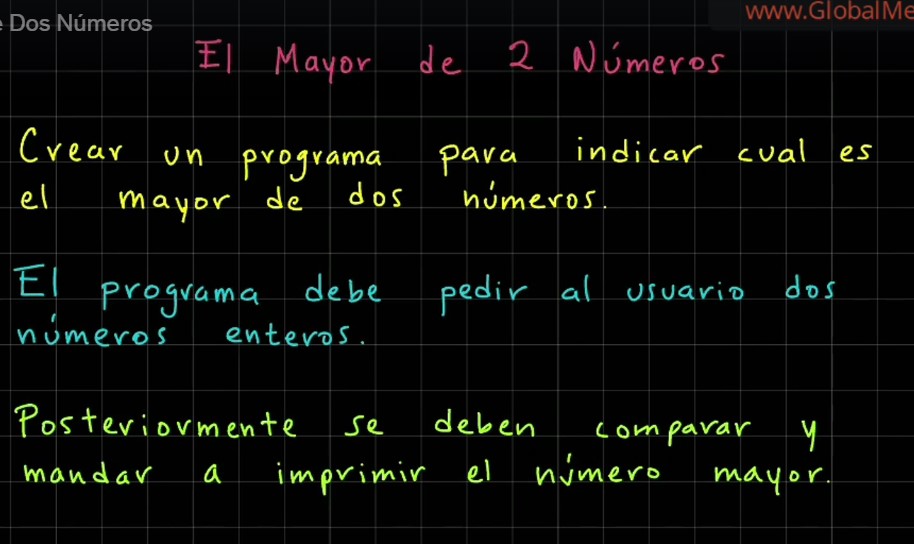 Dos Números
www.GlobalMe
El Mayor de 2 Números
Crear un programa para indicar cual es
el mayor de dos números.
El programa debe pedir al usuario dos
números enteros.
Posteriormente se deben comparar y
mandar a imprimir el número mayor.